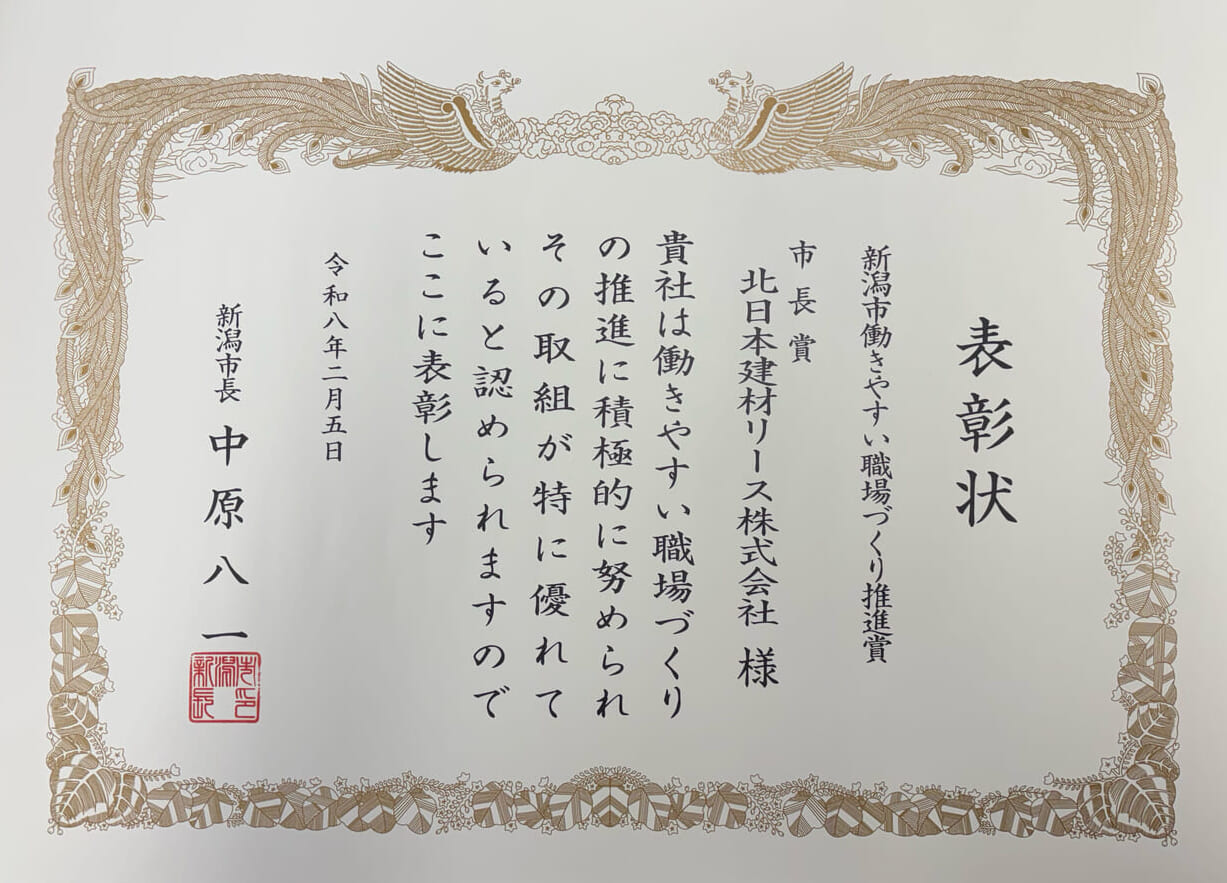 表彰状
新潟市働きやすい職場づくり推進賞
市長賞
北日本建材リース株式会社 様
貴社は働きやすい職場づくり
の推進に積極的に努められ
その取組が特に優れて
いると認められますので
ここに表彰します
令和八年二月五日
新潟市長 中原八一
新潟市長印